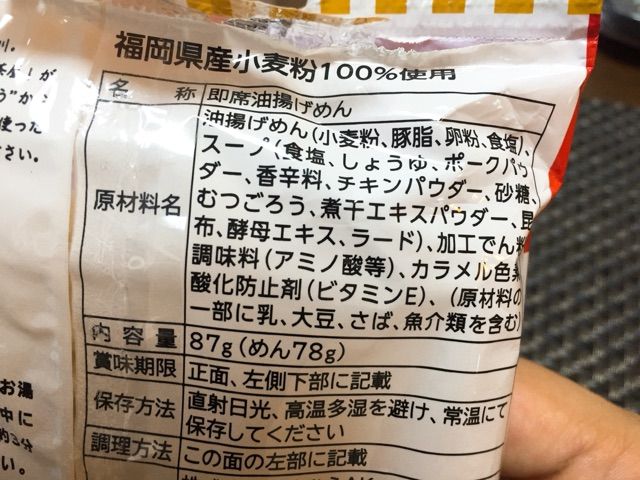 川。
が
か
使った
さい。
福岡県産小麦粉100%使用
名 称 即席油揚げめん
原材料名
油揚げめん(小麦粉、豚脂、卵粉、食塩)、
スープ(食塩、しょうゆ、ポークパウ
ダー、香辛料、チキンパウダー、砂糖、
むつごろう、煮干エキスパウダー、昆
布、酵母エキス、ラード)、加工でん粉
調味料(アミノ酸等)、カラメル色素
酸化防止剤(ビタミンE)、(原材料の
一部に乳、大豆、さば、魚介類を含む)
内容量 87g(めん78g)
賞味期限 正面、左側下部に記載
保存方法 直射日光、高温多湿を避け、常温にて
保存してください
調理方法 この面の左部に記載
お湯
中に
約3分
い。